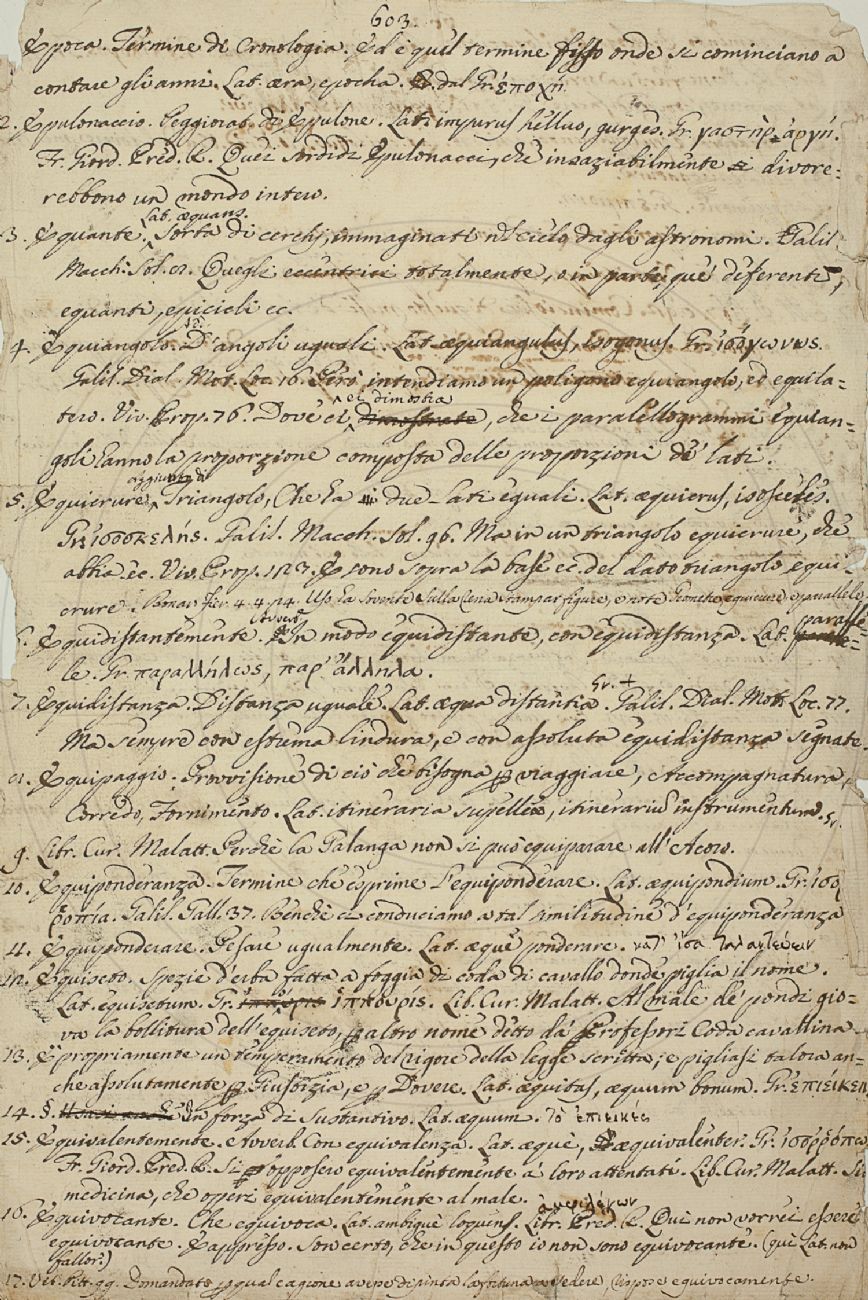 603.
Epoca. Termine di Cronologia. Ed è quel termine fisso onde si cominciano a
contare gli anni. Lat. æra, epocha. dal Gr. ἐποχή
2. Epulonaccio. Peggiorat. di Epulone. Lat. impurus helluo, gurges. Gr. γαστὴρ ἀργή.
Fr. Giord. Pred. R. Quei sordidi Epulonacci, che insaziabilmente si divore:
rebbono un mondo intero.
Lat. æquans.
3. Equante. Sorta di cerchj, immaginati nel cielo dagli astronomi. Galil.
Macch. Sol. Quegli eccentrici totalmente, o in parte que' deferenti,
equanti, epicicli ec.
4. Equiangolo. D'angoli uguali. Lat. æquiangulus, isogonus. Gr. ἰσόγωνος.
Galil. Dial. Mot. Loc. 16. Però intendiamo un poligono equiangolo, ed equila-
ei dimostra
tero. Viv. Prop. 76. Dove ei dimostrate, che i parallelogrammi equian-
goli hanno la proporzione composta delle proporzioni de' lati.
aggiunto di
5. Equicrure. Triangolo, Che ha due lati eguali. Lat. æquicrus, isosceles.
Gr. ἰσοσκελής. Galil. Macch. Sol. 96. Ma in un triangolo equicrure, che
abbia ec. Viv. Prop. 123. E sono sopra la base ec. del dato triangolo equi-
crure. Buonar. Fier. 4. 4. 24. figure, e note Geometriche equicrure, e parallele
Avverb.
6. Equidistantemente. In modo equidistante, con equidistanza. Lat. paralle-
le. Gr. παραλλήλως, παρ' ἄλληλα.
7. Equidistanza. Distanza uguale. Lat. æqua distantia. Gr. + Galil. Dial. Mot. Loc. 77.
Ma sempre con estrema lindura, e con assoluta equidistanza segnate.
Equipaggio. Provvisione di ciò che bisogna p viaggiare, Accompagnatura,
Corredo, Fornimento. Lat. itineraria supellex, itinerariū instrumentum. Gr.
9. Libr. Cur. Malatt. Perchè la Galanga non si può equiparare all'Acoro.
10. Equiponderanza. Termine che esprime l'equiponderare. Lat. æquipondium. Gr. ἰσοῤ
ῥοπία. Galil. Gall. 37. Benchè ci conduciamo a tal similitudine d'equiponderanza
11. Equiponderare. Pesare ugualmente. Lat. æque ponderare. κατ' ἴσα ταλαντεύειν
12. Equiseto. Spezie d'erba fatta a foggia di coda di cavallo donde piglia il nome.
Lat. equisetum. Gr. ἵππουρις. Lib. Cur. Malatt. Al male de' pondi gio-
va la bollitura dell'equiseto, p altro nome detto da' Professori Coda cavallina.
13. E propriamente un temperamento del rigore della legge scritta; e pigliasi talora an-
che assolutamente p Giustizia, e p Dovere. Lat. æquitas, æquum bonum. Gr. ἐπιείκεια
14. §. In forza di Sustantivo. Lat. æquum. τὸ ἐπιεικές
15. Equivalentemente. Avverb. Con equivalenza. Lat. æque, æquivalenter. Gr. ἰσοῤῥόπως
Fr. Giord. Pred. R. Si opposero equivalentemente a' loro attentati. Lib. Cur. Malatt.
medicina, che operi equivalentemente al male.
16. Equivocante. Che equivoca. Lat. ambigue loquens. Libr. Pred. R. Qui non vorrei essere
equivocante. E appresso. Son certo, che in questo io non sono equivocante. (qui Lat. non
fallor?)
17. Vit. Pitt. 99. Domandato p qual cagione avesse dipinta la fortuna a sedere, rispose equivocamente.